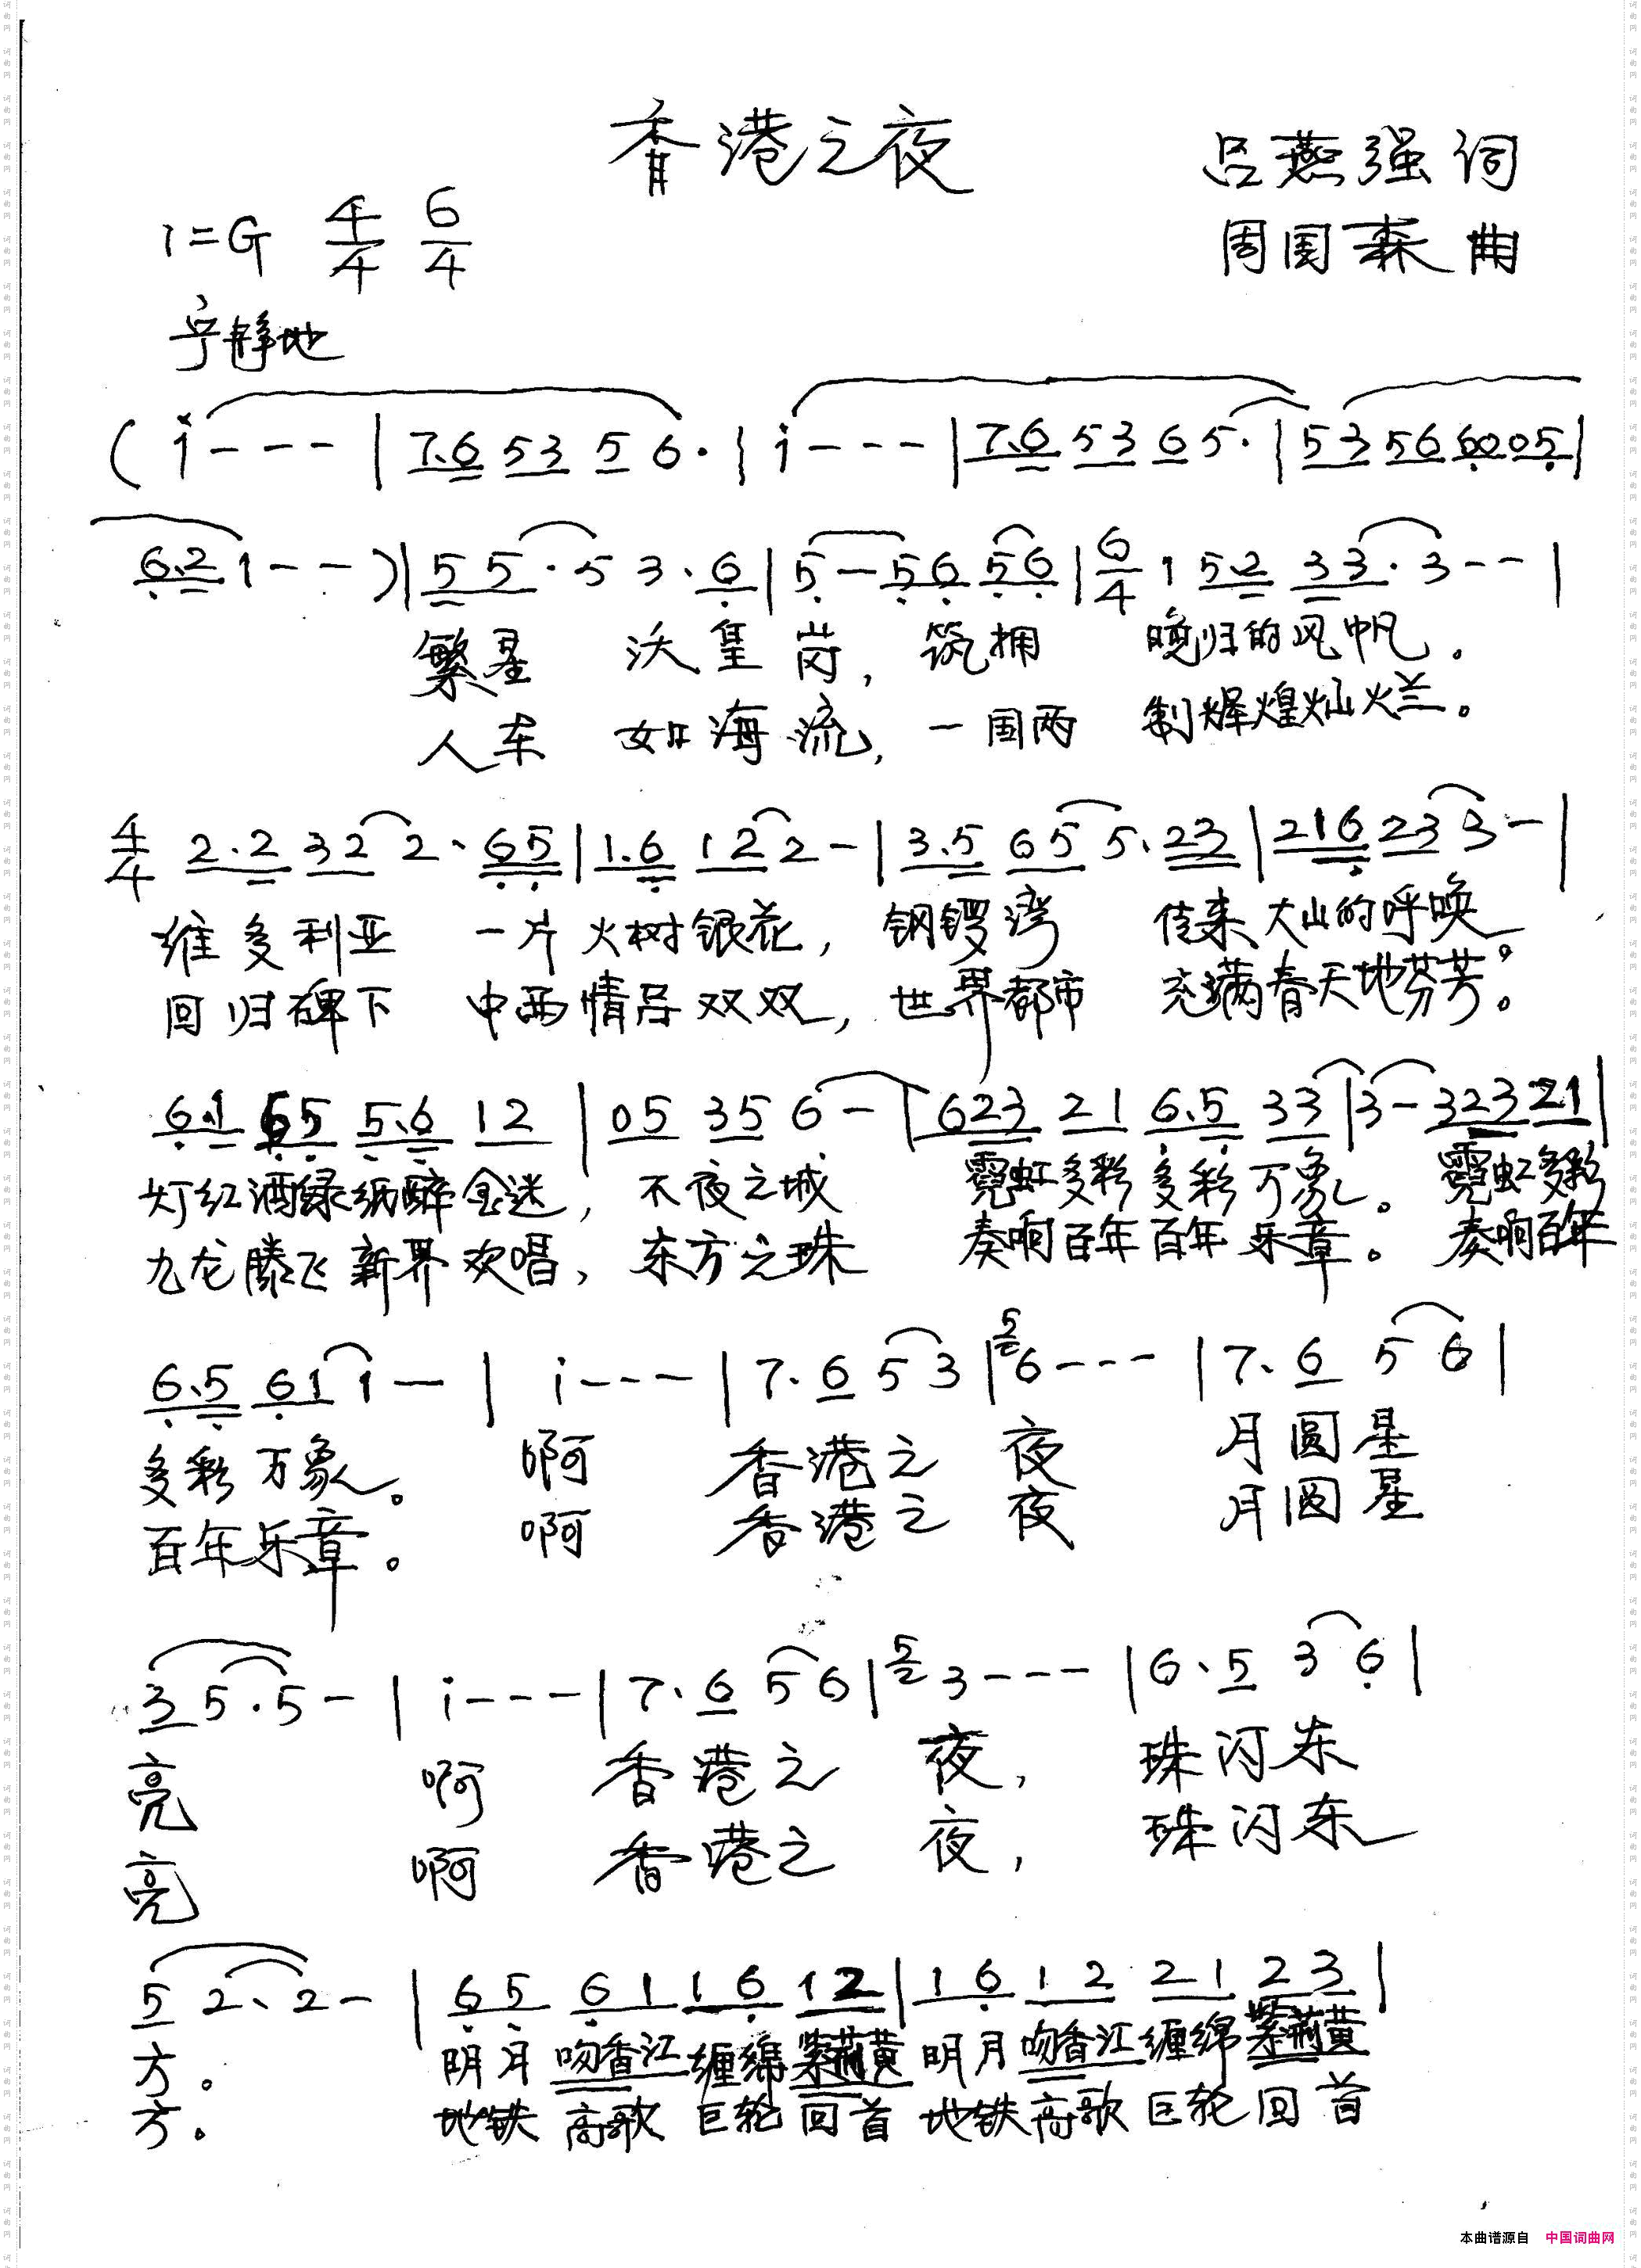 香港之夜
吕燕强 词
1=G 4/4 6/4
周国森 曲
宁静地
( i - - - | 7.6 53 5 6. | i - - - | 7.6 53 6 5. | 53 56 60 05 |
6.2 1 - - ) | 5 5. 5 3. 6 | 5 - 56 56 | 6/4 1 5.2 33. 3 - - |
繁星 沃皇岗, 筑拥 晚归的风帆.
人车 如海流, 一国两 制辉煌灿烂。
4/4 2.2 32 2. 65 | 1.6 12 2 - | 3.5 65 5. 23 | 216 23 3 - |
维多利亚 一片火树银花, 铜锣湾 传来大山的呼唤。
回归碑下 中西情吕双双, 世界都市 充满春天地芬芳。
6.1 65 5.6 12 | 05 35 6 - | 623 21 6.5 33 | 3 - 323 21 |
灯红酒绿纸醉金迷, 不夜之城 霓虹多彩多彩万象。 霓虹多彩
九龙腾飞新界欢唱, 东方之珠 奏响百年百年乐章。 奏响百年
6.5 61 1 - | i - - - | 7. 6 5 3 | 5 6 - - - | 7. 6 5 6 |
多彩万象。 啊 香港之 夜 月圆星
百年乐章。 啊 香港之 夜 月圆星
3 5. 5 - | i - - - | 7. 6 5 6 | 5 3 - - - | 6. 5 3 6 |
亮 啊 香港之 夜, 珠闪东
亮 啊 香港之 夜, 珠闪东
5 2. 2 - | 65 61 16 12 | 16 12 21 23 |
方。 明月吻香江缠绵紫荆黄 明月吻香江缠绵紫荆黄
方。 地铁高歌巨轮回首 地铁高歌巨轮回首
本曲谱源自 中国词曲网